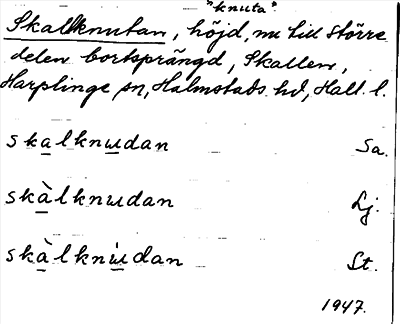 "knuta"
Skallknutan, höjd, nu till större
delen bortsprängd, Skallen,
Harplinge sn, Halmstads hd, Hall. l.
skalknudan Sa.
skàlknudan Lj.
skàlknùdan St.
1947.